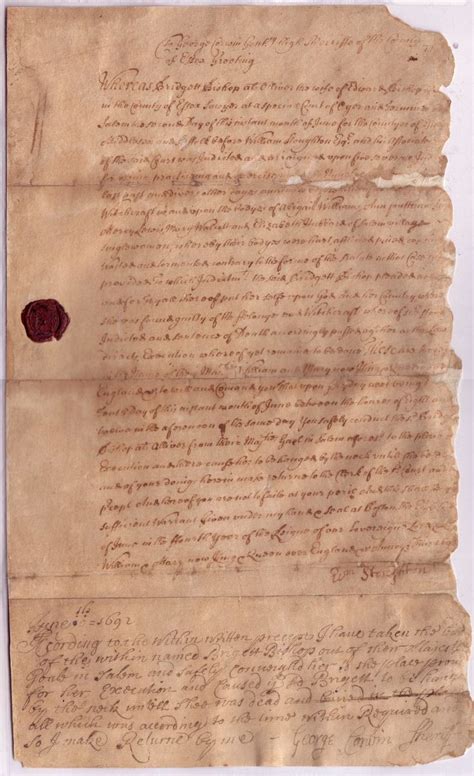 To George Corwin Gent^n High Sherriffe of the County
of Essex Greeting
Whereas Bridgett Bishop al's Oliver the wife of Edward Bishop
in the County of Essex Sawyer at a special Court of Oyer and Terminer
Salem the second day of this instant month of June for the Countyes of Essex
Middlesex and Suffolk before William Stoughton Esq^r and his Associates
of the said Court was Indicted and arraigned upon five several Indictments
for using practising and exercising
last past and divers other dayes
Witchcraft in and upon the bodyes of Abigail Williams Ann puttnam
Mercy Lewis Mary Walcott and Elizabeth Hubbard of Salem village
singlewomen, whereby their bodyes were hurt afflicted pined con
and tormented contrary to the forme of the Statute in that Case
provided To which Indictm^ts the said Bridgett Bishop pleaded
and for Tryall thereof put her selfe upon God and her Country
she was found guilty of the felonyes and Witchcrafts whereof she stood
Indicted and sentence of Death accordingly passed ag^t her as the Law
directs Execution whereof yet remaines to be done These are
William and Mary now King & Queen
England &c to will and Comand you That upon fryday next being
day of this instant month of June between the houres of eight and
twelve in the afternoon of the same day You safely conduct the s^d Bridgett
Bishop al's Oliver from their Maj^ties Gaol in Salem afores^d to the place
Execution and there cause her to be hanged by the neck untill she be
and of your doings herein make returne to the Clerk of the s^d Court and
And hereof you are not to faile at your peril And this shall be
sufficient Warrant Given under my hand & seal at Boston the
of June in the fourth Year of the Reigne of our Sovereigne Lord &
William & Mary now King & Queen over England
W^m Stoughton
June 1692
According to the within written precept I have taken the
of the within named Brigett Bishop out of their Majesties
Goale in Salem and Safely Conveighd her to the place
for her Execution and Caused the s^d Brigett to be hanged
by the neck untill Shee was dead and buried
all which was according to the time within Required and
So I make Returne by me George Corwin Sheriff